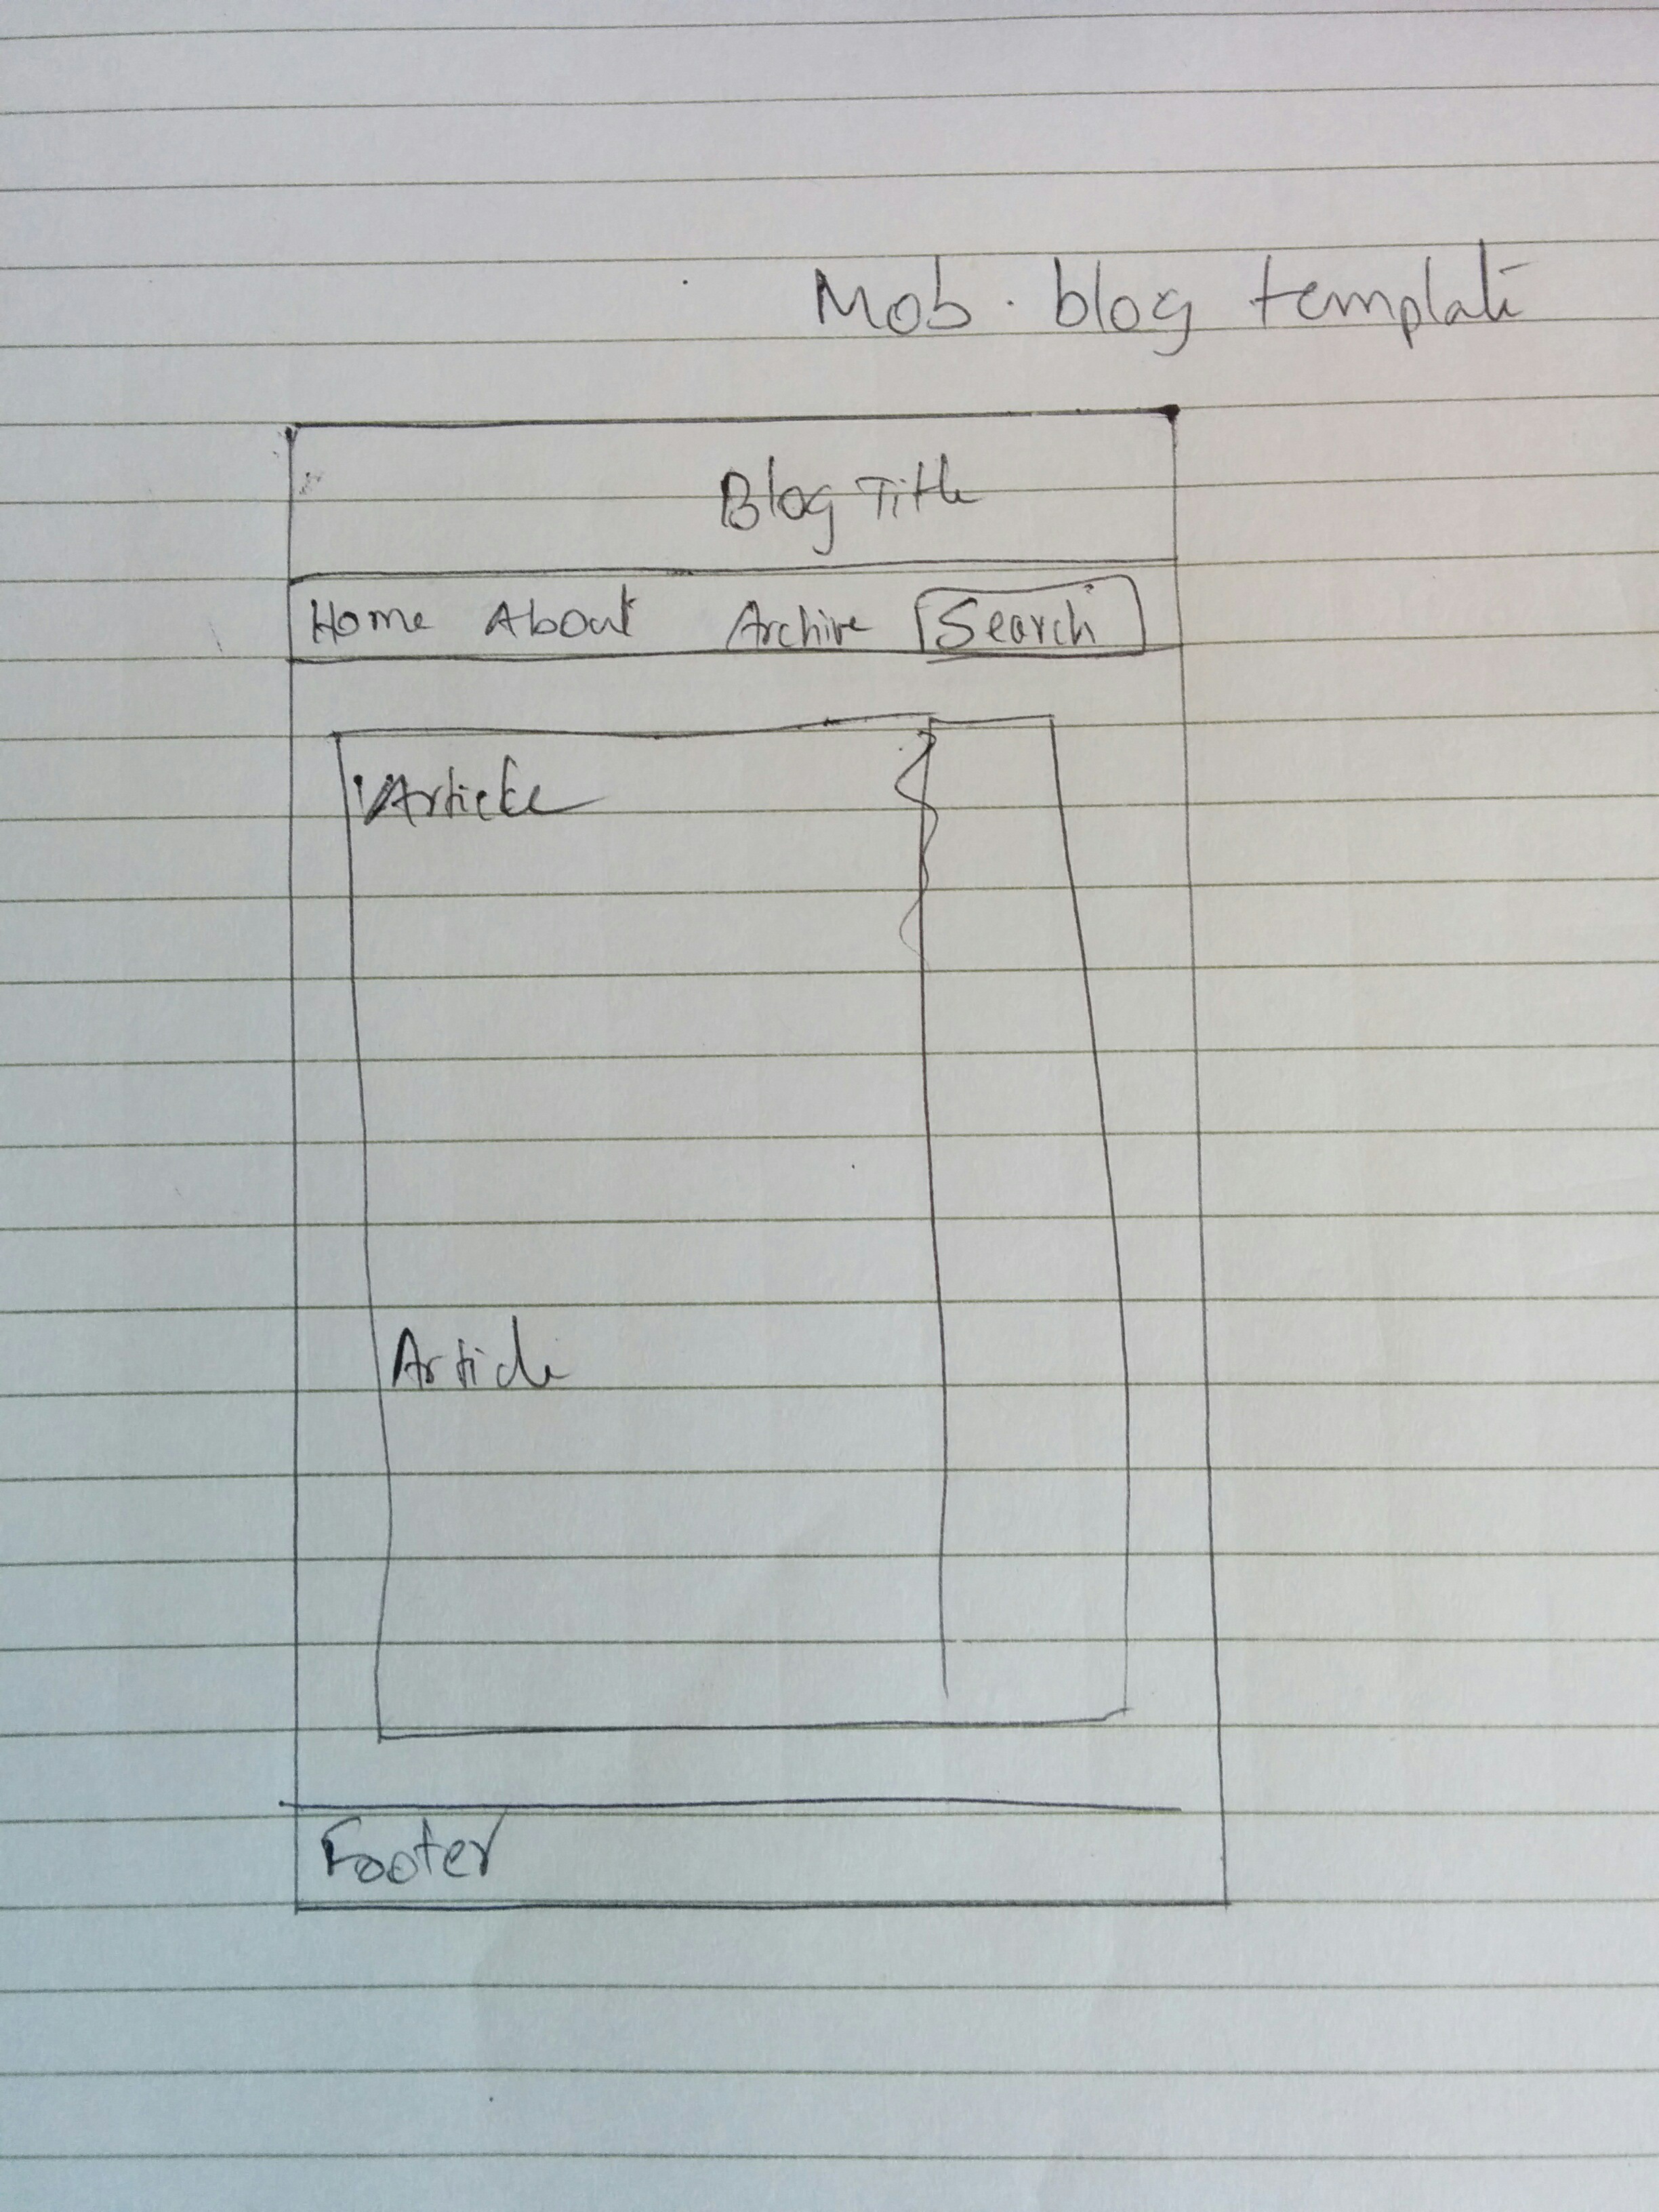 Mob. blog template
Blog Title
Home About Archive Search
Article
Article
Footer